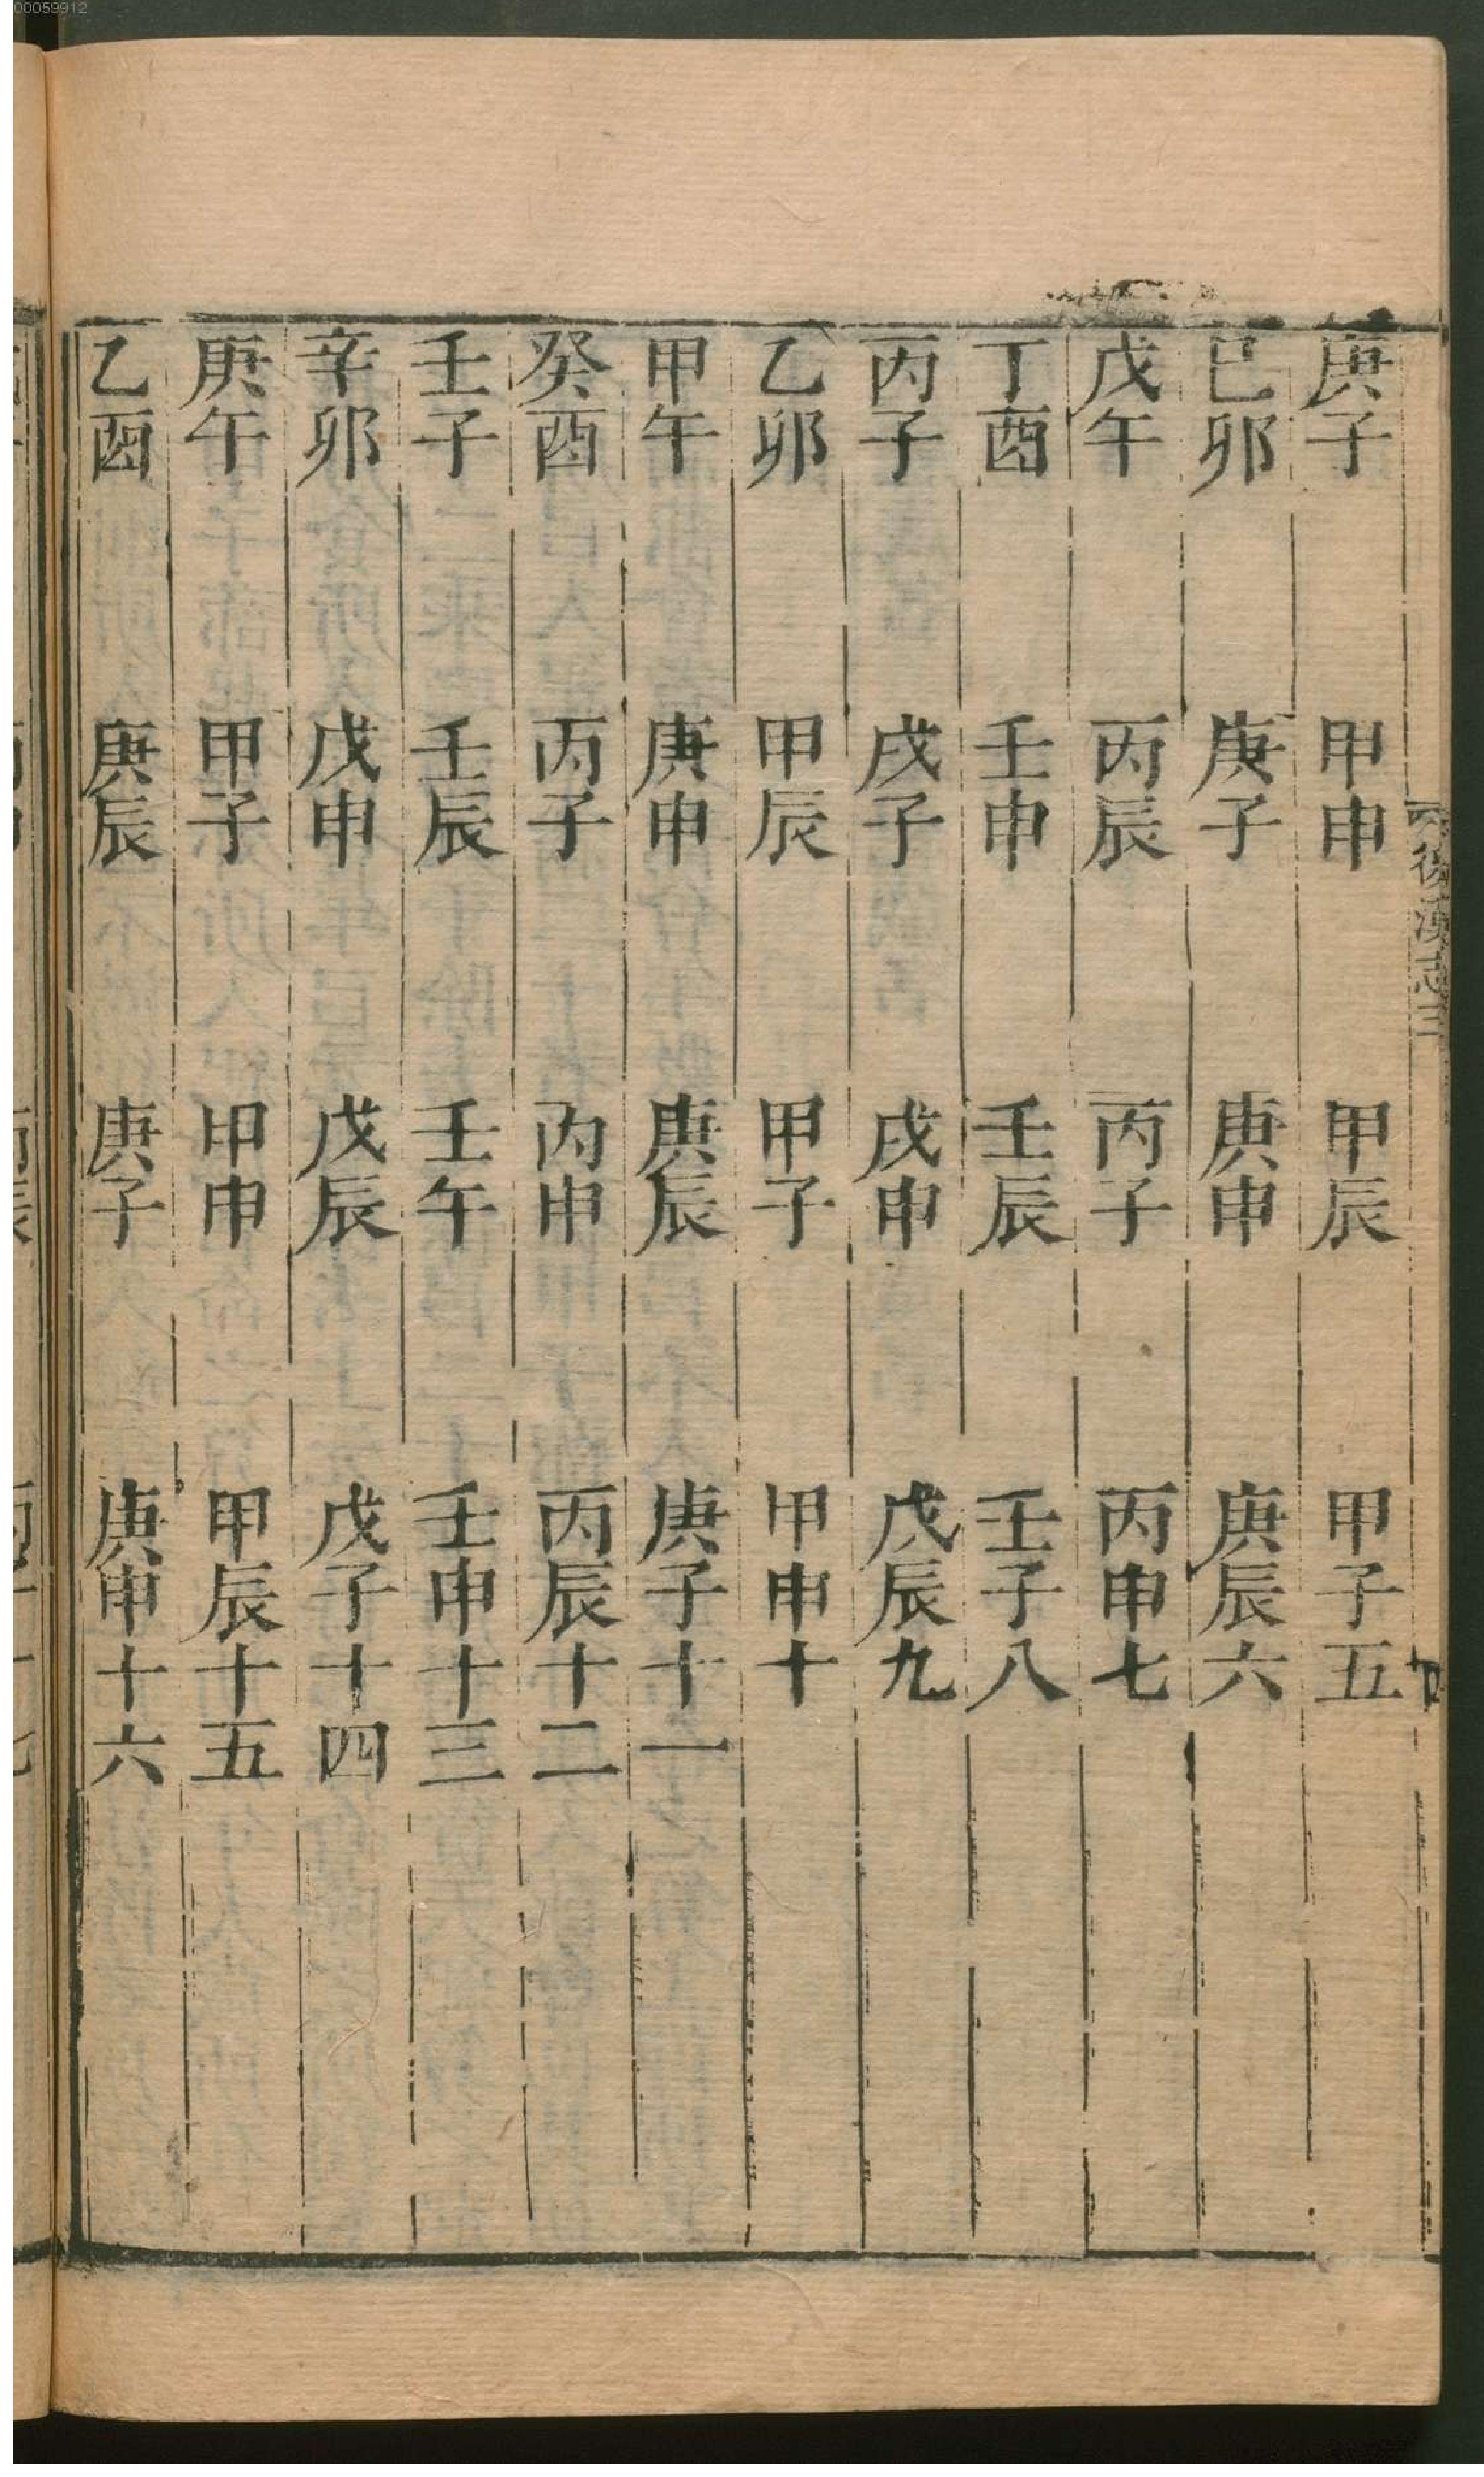 庚子 甲申 甲辰 甲子五
已卯 庚子 庚申 庚辰六
戊午 丙辰 丙子 丙申七
丁酉 壬申 壬辰 壬子八
丙子 戊子 戊申 戊辰九
乙卯 甲辰 甲子 甲申十
甲午 庚申 庚辰 庚子十一
癸酉 丙子 丙申 丙辰十二
壬子 壬辰 壬午 壬申十三
辛卯 戊申 戊辰 戊子十四
庚午 甲子 甲申 甲辰十五
乙酉 庚辰 庚子 庚申十六
後漢志三
00059912